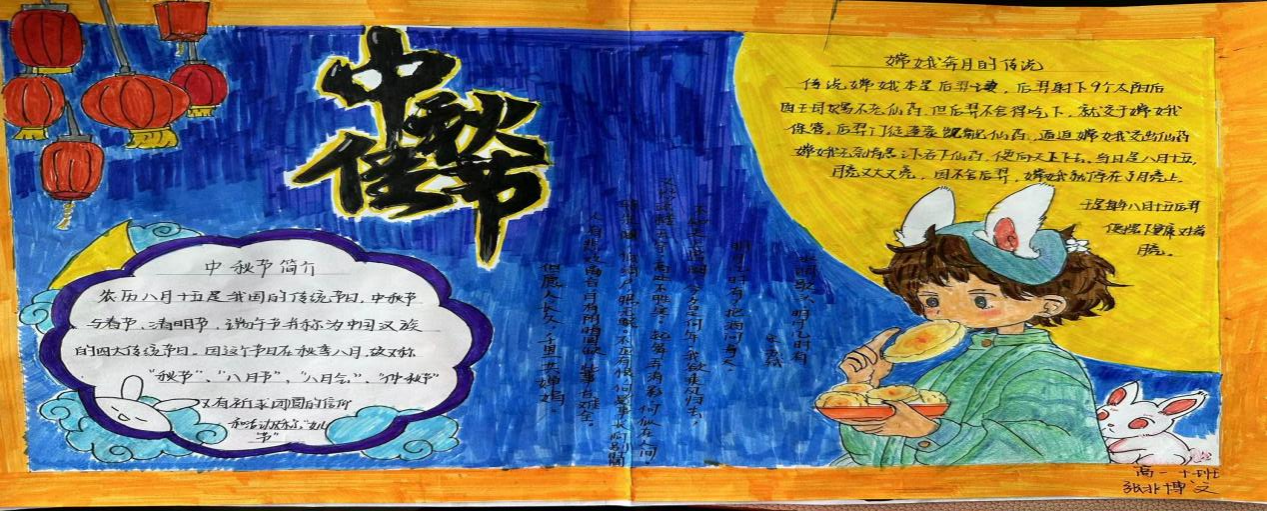 中秋佳节
中秋节简介
农历八月十五是我国的传统节日,中秋节
与春节、清明节、端午节并称为中国汉族
的四大传统节日。因这个节日在秋季八月,故又称
"秋节"、"八月节"、"八月会"、"仲秋节"
又有祈求团圆的信仰
和活动故称"女儿
节"
水调歌头·明月几时有
明月几时有?把酒问青天。
不知天上宫阙,今夕是何年。我欲乘风归去,
又恐琼楼玉宇,高处不胜寒。起舞弄清影,何似在人间。
转朱阁,低绮户,照无眠。不应有恨,何事长向别时圆
人有悲欢离合,月有阴晴圆缺,此事古难全。
但愿人长久,千里共婵娟。
嫦娥奔月的传说
传说嫦娥本是后羿之妻,后羿射下9个太阳后
西王母赐不老仙药,但后羿不舍得吃下,就交于嫦娥
保管。后羿门徒蓬蒙觊觎仙药,逼迫嫦娥交出仙药
嫦娥无奈情急之下吞下仙药,便向天上飞去。当日是八月十五,
月亮又大又亮,因不舍后羿,嫦娥就停在了月亮上。
于是每年八月十五后羿
便摆下宴席对着
月亮。
高一十班